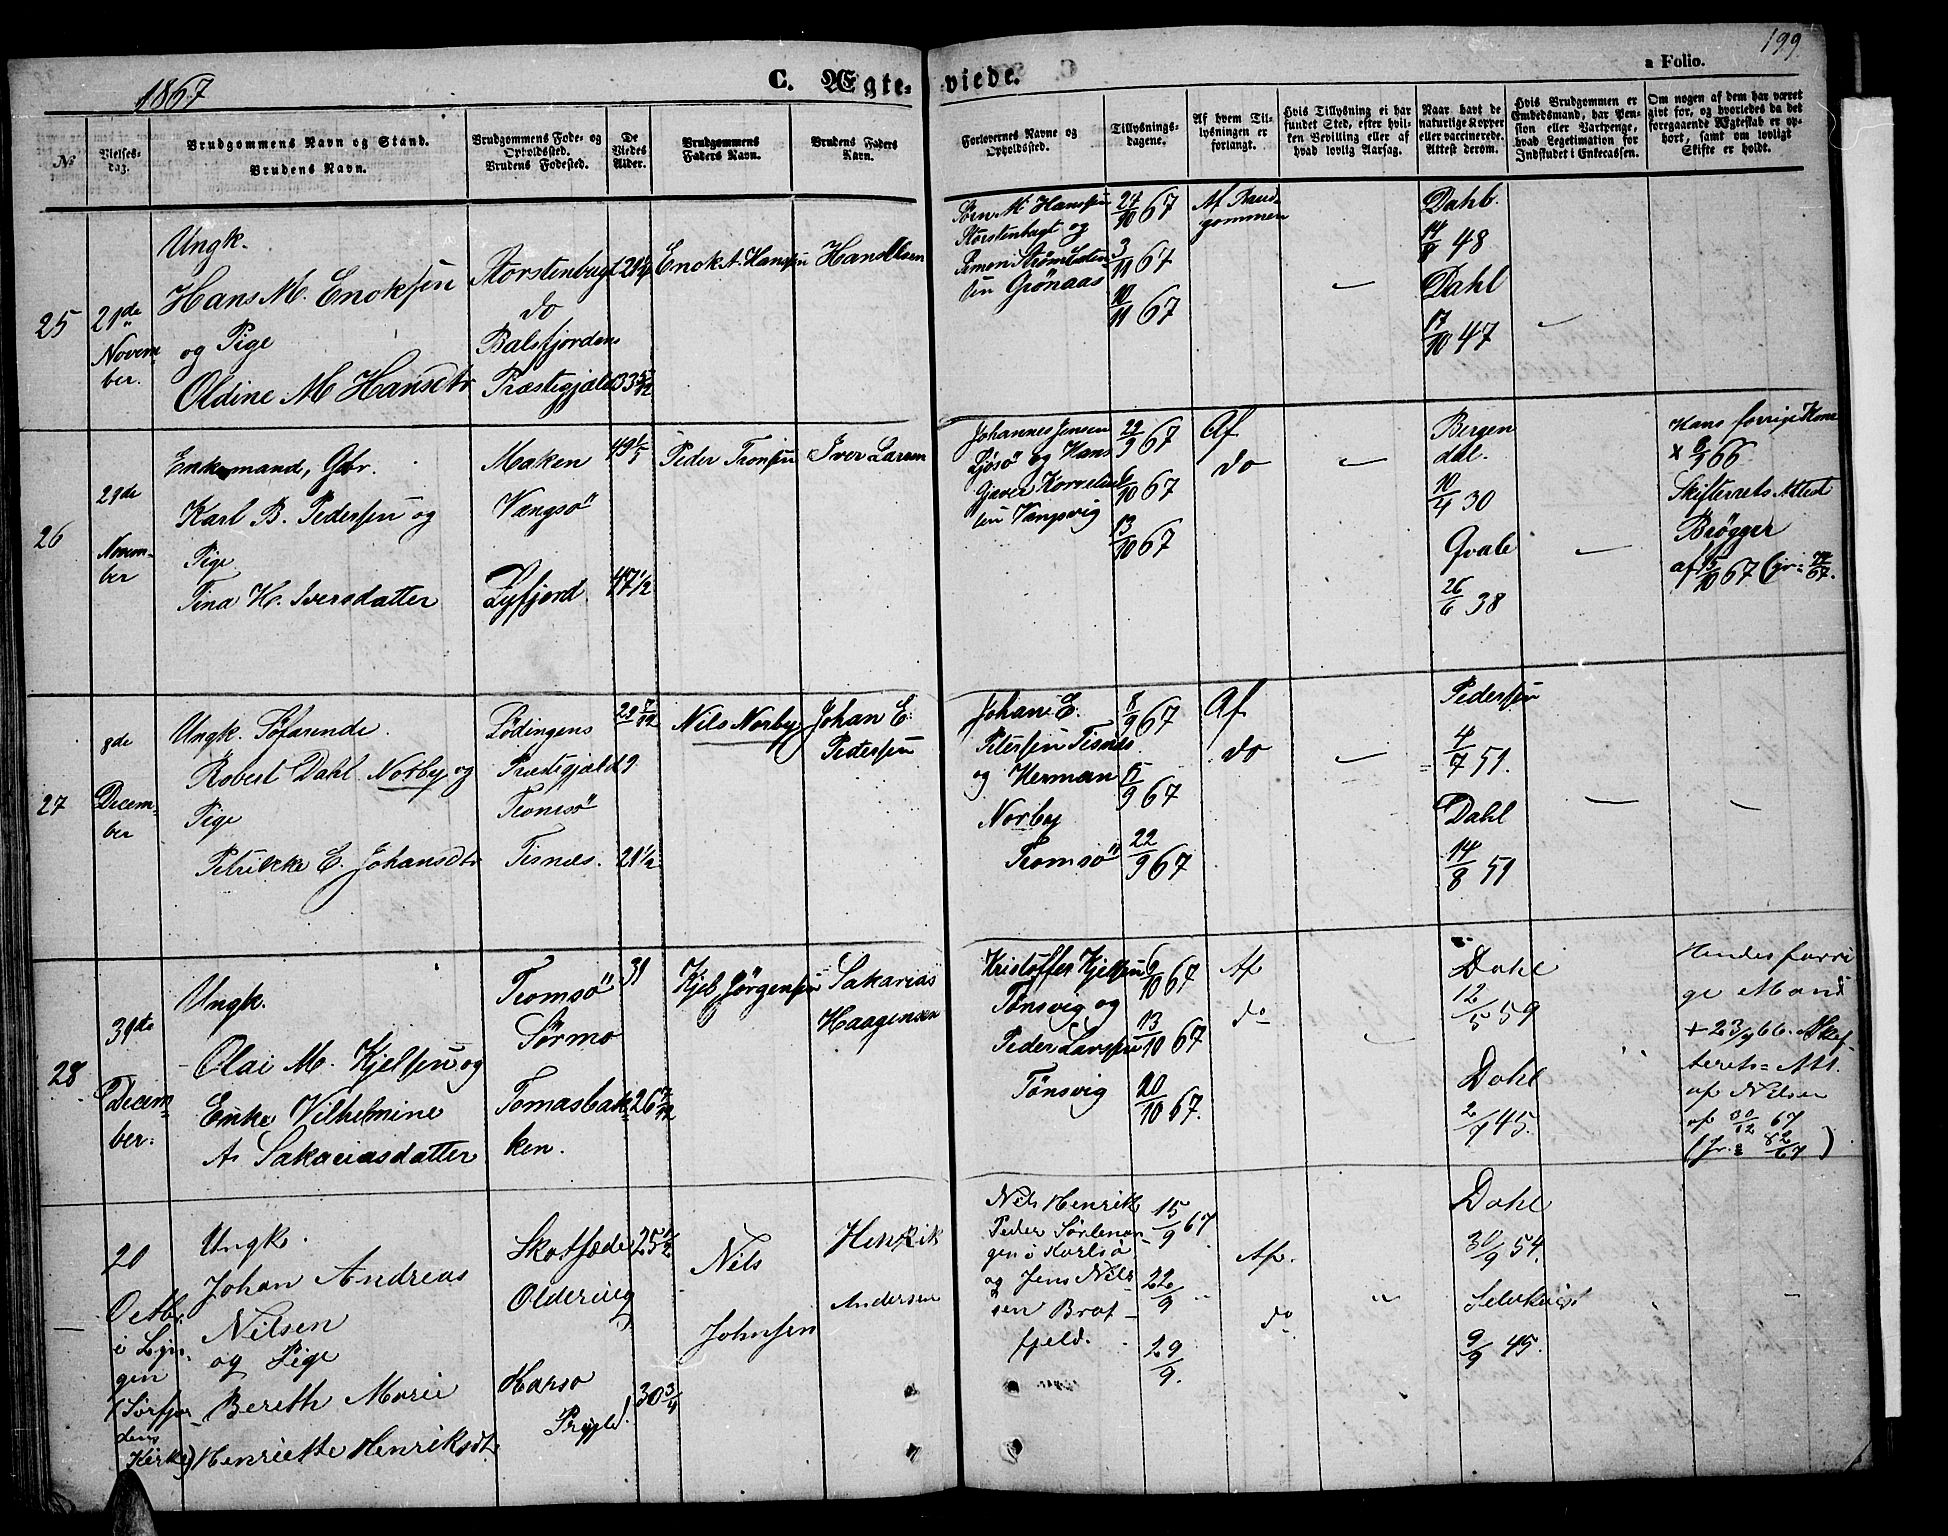 1867
C. Ægte-viede.
199
a Folio.
No
Vielses-dag.
Brudgommens Navn og Stand.
Brudens Navn.
Brudgommens Føde- og
Opholdssted.
Brudens Fødested.
De
Viedes
Alder.
Brudgommens
Faders Navn.
Brudens Faders
Navn.
Forlovernes Navne og
Opholdssted.
Tillysnings-
dagene.
Af hvem Til-
lysningen er
forlangt.
Hvis Tillysning ei har
fundet Sted, efter hvil-
ken Bevilling eller af
hvad lovlig Aarsag.
Naar havt de
naturlige Kopper
eller vaccinerede.
Attest derom.
Hvis Brudgommen er
Embedsmand, har Pen-
sion eller Vartpenge,
hvad Legitimation for
Indskudet i Enkecassen.
Om nogen af dem har været
givt før, og hvorledes da det
foregaaende Ægteskab er op-
hørt, samt om lovligt
Skifte er holdt.
25
21de
Novem-
ber.
Ungk.
Hans M. Enoksen
og Pige
Oldine M Hansdtr
Storstenbugt
do
Balsfjordens
Præstegjæld
Enok A. Hansen
Hans Olsen
Søren M Hanssen
Storstenbugt og
Simon
Grønaas
27/10 67
3/11 67
10/11 67
Af Brud-
gommen
Dahl.
14/8 48
Dahl
17/10 47
26
29de
Novem-
ber
Enkemand, Gbr.
Karl B. Pedersen og
Pige
Tina H. Iversdatter
Maken
Vængsö
Lyfjord
47 1/2
Peder Tronsen
Iver Larsen
Johannes Jensen
og Hans
Gjæver Kornelius-
sen Vangsvig
29/9 67
6/10 67
13/10 67
Af
do
Bergen
dal.
10/4 30
Qvale
26/6 38
Hans forrige Kone
Skifterets Attest
Brøgger
af 15/10 67
27
8de
Decem-
ber
Ungk. Søfarende
Robert Dahl Norby og
Pige
Petrikke E. Johansdtr
Lødingens
Præstegjæld
Tromsö
Tisnæs.
21 1/2
Nils Norby
Johan E.
Pedersen
Johan E.
Petersen Tisnæs
og Herman
Norby
Tromsö
8/9 67
15/9 67
22/9 67
Af
do
Pedersen
4/7 51.
Dahl
14/8 51
28
31te
Decem-
ber.
Ungk.
Olai M. Kjelsen og
Enke Vilhelmine
A. Sakariasdatter
Tromsö
Sørmo
Tomasbak-
ken.
31
26
Kjel Jörgensen
Sakarias
Haagensen
Kristoffer Kjelsen
Tønsvig og
Peder Larssen
Tønsvig
6/10 67
13/10 67
20/10 67.
Af
do
Dahl
12/5 59
Dahl
2/7 45.
Hendes forri
ge Mand
Skif-
terets= Att.
af Nilsen
af 30/12 67
(Jr.: 82/67)
20
Octb.
i Lyn-
gen
(Sørfjor-
dens
Kirke)
Ungk.
Johan Andreas
Nilsen
og Pige
Bereth Marie
Henriette Henriksdt.
Olderviig
Karlsø
Prgjeld.
30 3/4
Nils
Johnsen
Henrik
Andersen
Nils Henrik
Peder
gen i Karlsö
og Jens Nil-
sen Brat-
fjeld.
15/9 67
22/9 "
29/9.
Af.
do
Dahl
30/9 54.
9/9 45.